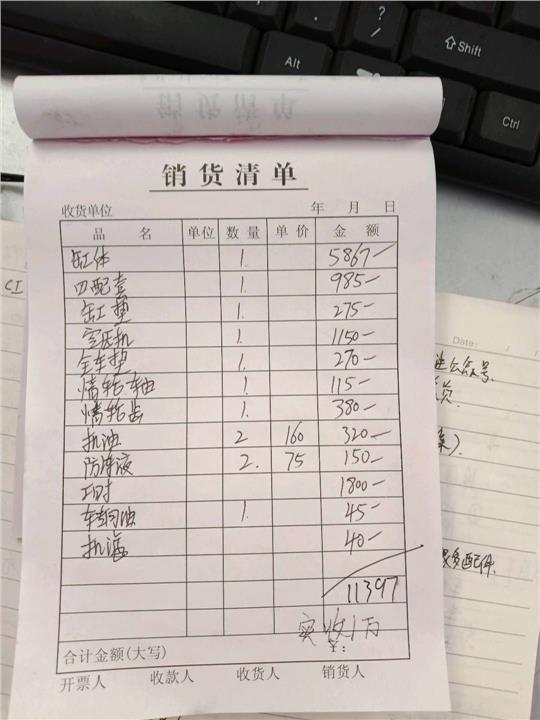 ?
/
Alt
⇧Shift
Ctrl
销货清单
收货单位 年 月 日
品 名 单位 数量 单价 金 额
缸体 1. 5867-
四配套 1. 985-
缸垫 1. 275-
空压机 1. 1150-
全车垫 1. 270-
惰轮轴 1. 115-
惰轮齿 1. 380-
机油 2 160 320-
防冻液 2. 75 150-
工时 1800-
转向油 1. 45-
机滤 40-
11397
实收1万
合计金额(大写) ¥:
开票人 收款人 收货人 销货人
CI
Date: / /
公众号.
员.
)
多配件.